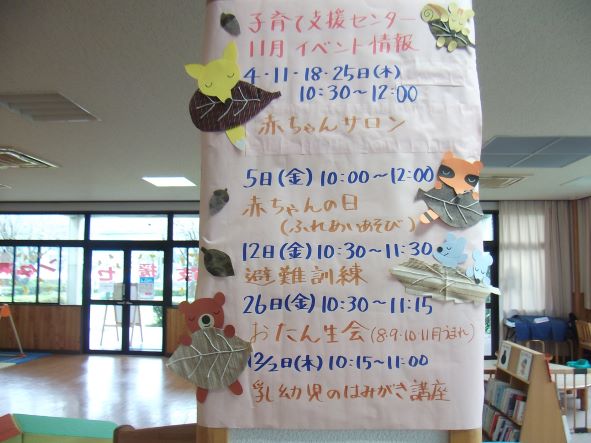 子育て支援センター
11月イベント情報
4・11・18・25日(木)
10:30〜12:00
赤ちゃんサロン
5日(金)10:00〜12:00
赤ちゃんの日
(ふれあいあそび)
12日(金)10:30〜11:30
避難訓練
26日(金)10:30〜11:15
おたん生会(8・9・10・11月うまれ)
12/2日(木)10:15〜11:00
乳幼児のはみがき講座